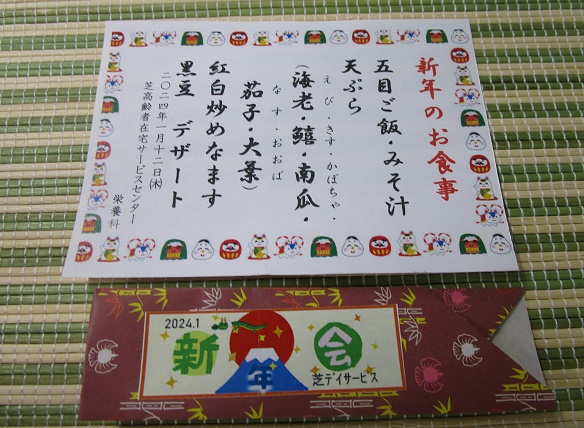 新年のお食事
五目ご飯・みそ汁
天ぷら
えび・きす・かぼちゃ・
（海老・鱚・南瓜・
なす・おおば
茄子・大葉）
紅白炒めなます
黒豆　デザート
二〇二四年一月十二日（木）
芝高齢者在宅サービスセンター
栄養科
2024.1
新年会
芝デイサービス